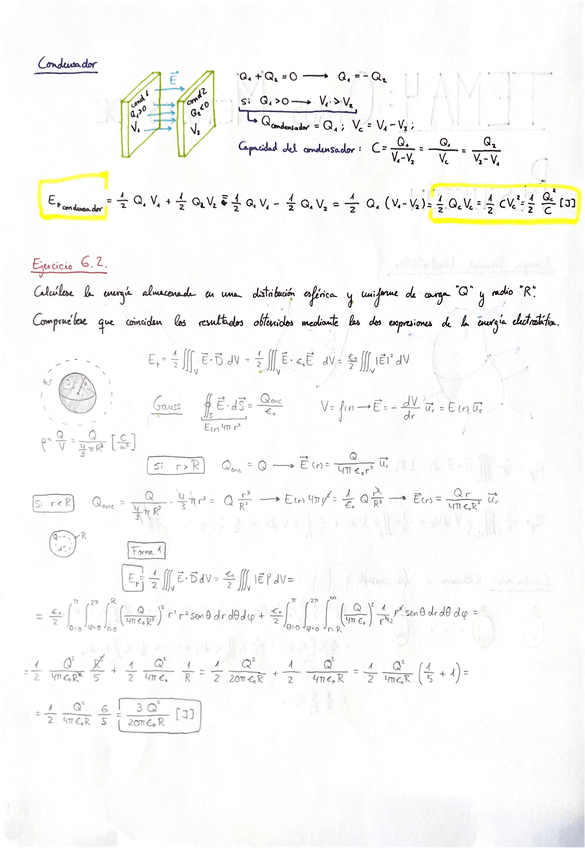 Condensador
cond 1 Q₁>0 V₁
E⃗
cond 2 Q₂<0 V₂
Q₁ + Q₂ = 0 → Q₁ = - Q₂
si Q₁ > 0 → V₁ > V₂
Q condensador = Q₁ ; V_c = V₁ - V₂ ;
Capacidad del condensador : C = Q₁/(V₁-V₂) = Q₁/V_c = Q₂/(V₂-V₁)
E_p condensador = 1/2 Q₁V₁ + 1/2 Q₂V₂ = 1/2 Q₁V₁ - 1/2 Q₁V₂ = 1/2 Q₁ (V₁-V₂) = 1/2 Q_c V_c = 1/2 C V_c² = 1/2 Q_c²/C [J]
Ejercicio 6.2.
Calcúlese la energía almacenada en una distribución esférica y uniforme de carga "Q" y radio "R".
Compruébese que coinciden los resultados obtenidos mediante las dos expresiones de la energía electrostática.
E_p = 1/2 ∭_V E⃗ · D⃗ dV = 1/2 ∭_V E⃗ · ε₀E⃗ dV = ε₀/2 ∭_V |E⃗|² dV
Gauss ∯_S E⃗ · dS⃗ = Q_enc/ε₀ V = f(r) → E⃗ = - dV/dr u⃗_r = E(r) u⃗_r
E(r) 4π r²
ρ = Q/V = Q/(4/3 π R³) [C/m³]
si r > R Q_enc = Q → E⃗(r) = Q/(4π ε₀ r²) u⃗_r
Si r < R Q_enc = Q/(4/3 π R³) · 4/3 π r³ = Q r³/R³ → E(r) 4π r² = 1/ε₀ Q r³/R³ → E⃗(r) = Q r/(4π ε₀ R³) u⃗_r
R
Forma 1
E_p = 1/2 ∭_V E⃗ · D⃗ dV = ε₀/2 ∭_V |E⃗|² dV =
= ε₀/2 ∫_{θ=0}^{π} ∫_{φ=0}^{2π} ∫_{r=0}^{R} (Q/(4π ε₀ R³))² r² r² sen θ dr dθ dφ + ε₀/2 ∫_{θ=0}^{π} ∫_{φ=0}^{2π} ∫_{r=R}^{∞} (Q/(4π ε₀))² 1/r⁴ r² sen θ dr dθ dφ =
= 1/2 Q²/(4π ε₀ R⁶) R⁵/5 + 1/2 Q²/(4π ε₀) 1/R = 1/2 Q²/(20π ε₀ R) + 1/2 Q²/(4π ε₀ R) = 1/2 Q²/(4π ε₀ R) (1/5 + 1) =
= 1/2 Q²/(4π ε₀ R) 6/5 = 3 Q²/(20π ε₀ R) [J]